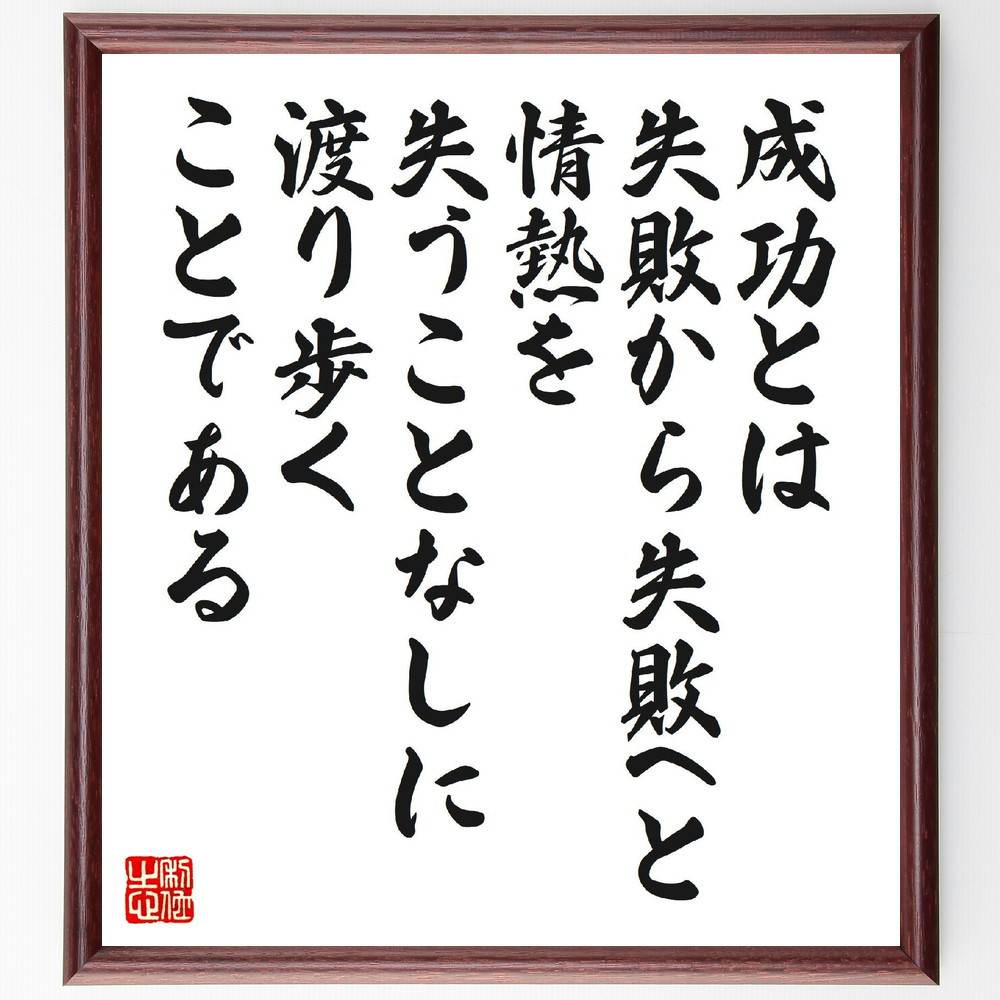 成功とは
失敗から失敗へと
情熱を
失うことなしに
渡り歩く
ことである